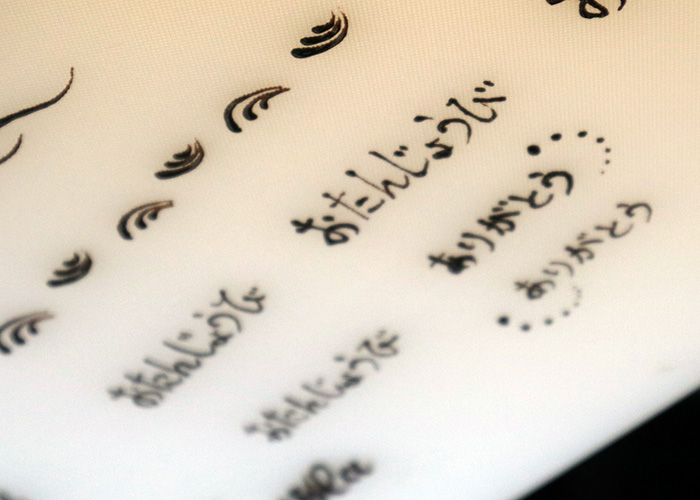 おたんじょうび
ありがとう
ありがとう
おたんじょうび
おたんじょうび